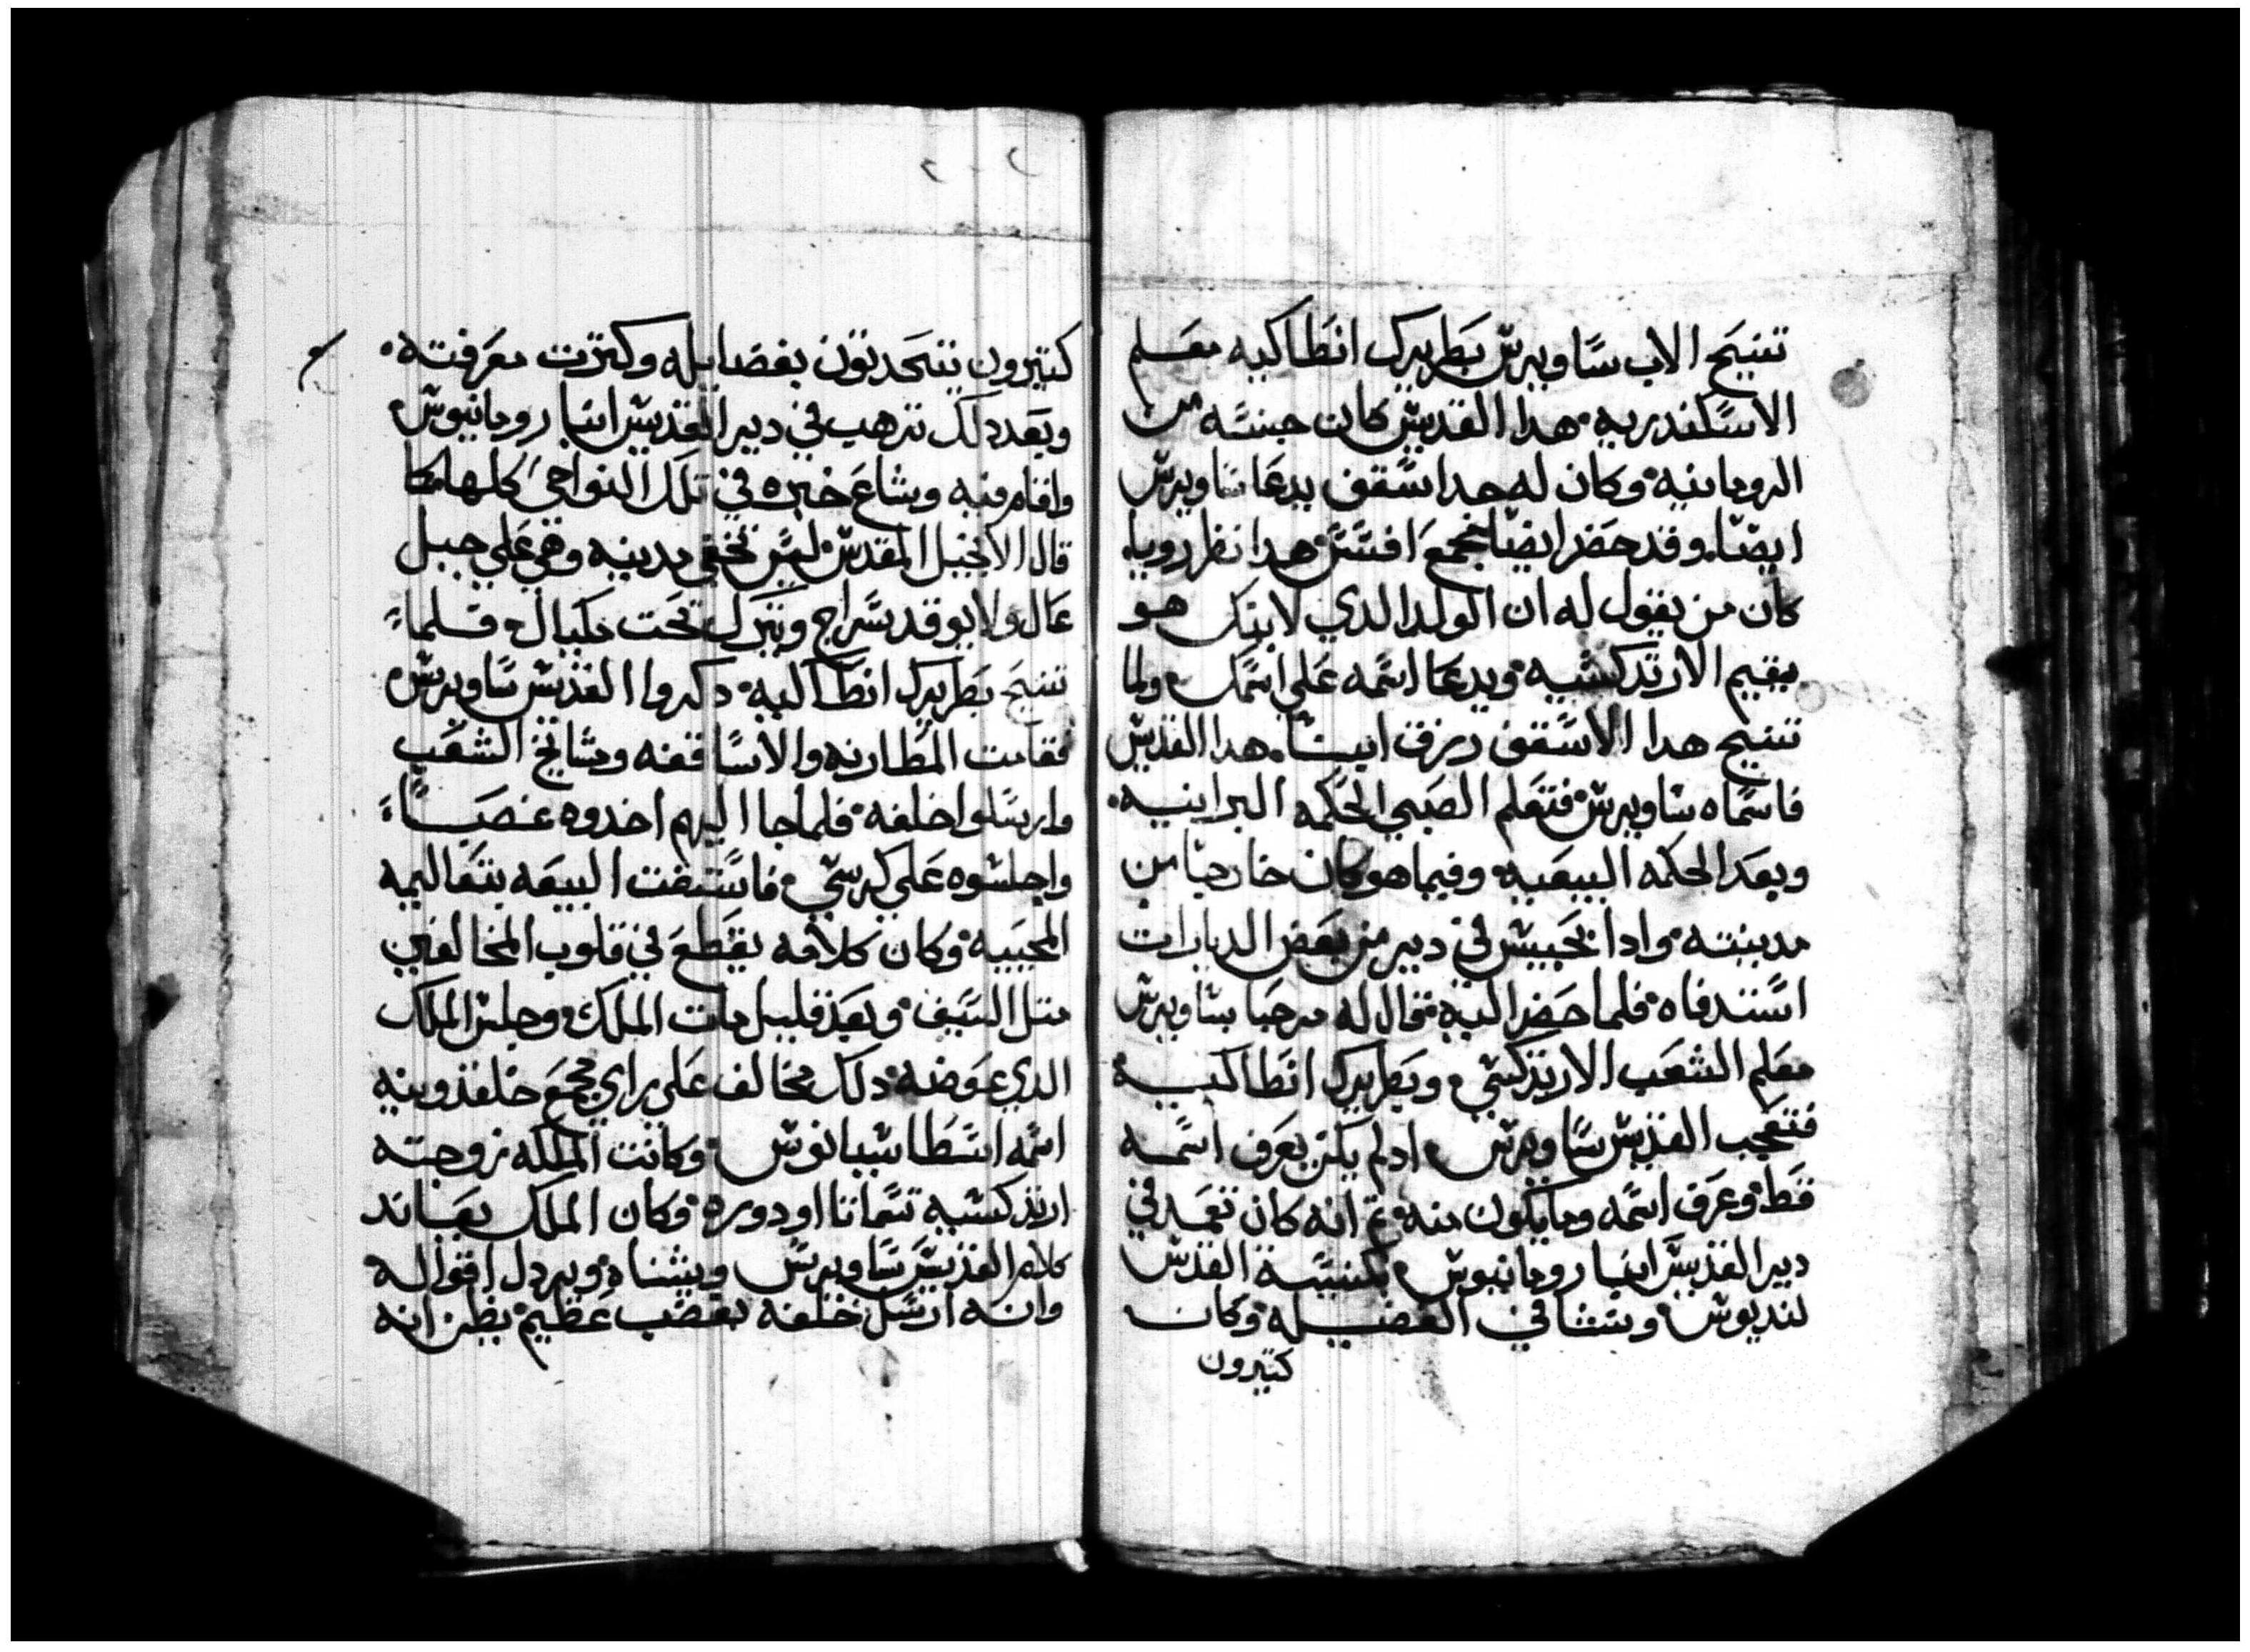 تنيح الاب ساويرس بطريرك انطاكيه معلم
الاسكندريه هدا القديس كان جنسه من
الرومانيه وكان له جدا اسقف يدعا ساويرس
ايضا وقد حضر ايضا مجمع افسس هدا نظر رويا
كان من يقول له ان الولد الدي لابنك هو
يقيم الارتدكسيه ويدعا اسمه على اسمك ولما
تنيح هدا الاسقف رزق ابيسا هدا القديس
فاسماه ساويرس فتعلم الصبي الحكمه البرانيه
وبعد الحكمه البيعيه وفيما هو كان خارجا من
مدينته وادا بحبيس في دير من بعض الديارات
استدفاه فلما حضر اليه قال له مرحبا بساويرس
معلم الشعب الارتدكسي وبطريرك انطاكيه
فتعجب القديس ساويرس ادلم يكن يعرف اسمه
قط وعرف اسمه وما يكون منه تم انه كان تعمد في
دير القديس ابنا رومانيوس بكنيسة القدس
لنديوس ونشا في الفضيله وكان
كتيرون
كتيرون يتحدتون بفضايله وكترت معرفته
وبعد دلك ترهب في دير القديس ابنا رومانيوس
واقام فيه وشاع خبره في تلك النواحي كلها كما
قال الانجيل المقدس ليس تخفى مدينه وهي على جبل
عال ولا يوقد سراج ويترك تحت مكيال فلما
تنيح بطريرك انطاكيه دكروا القديس ساويرس
فقامت المطارنه والاساقفه ومشايخ الشعب
وارسلوا خلفه فلما جا اليهم اخدوه غصبا
واجلسوه على كرسي فاستيفت البيعه بتعاليمه
المحييه وكان كلامه يقطع في قلوب المخالفين
متل السيف وبعد قليل مات الملك وجلس الملك
الدي عوضه دلك مخالف على راي مجمع خلقدونيه
اسمه اسطاسيانوس وكانت الملكه زوجته
ارتدكسيه تسما تا اودوره وكان الملك يعاند
كلام القديس ساويرس ويشناه ويردل اقواله
وانه ارسل خلفه بغضب عظيم يظن انه